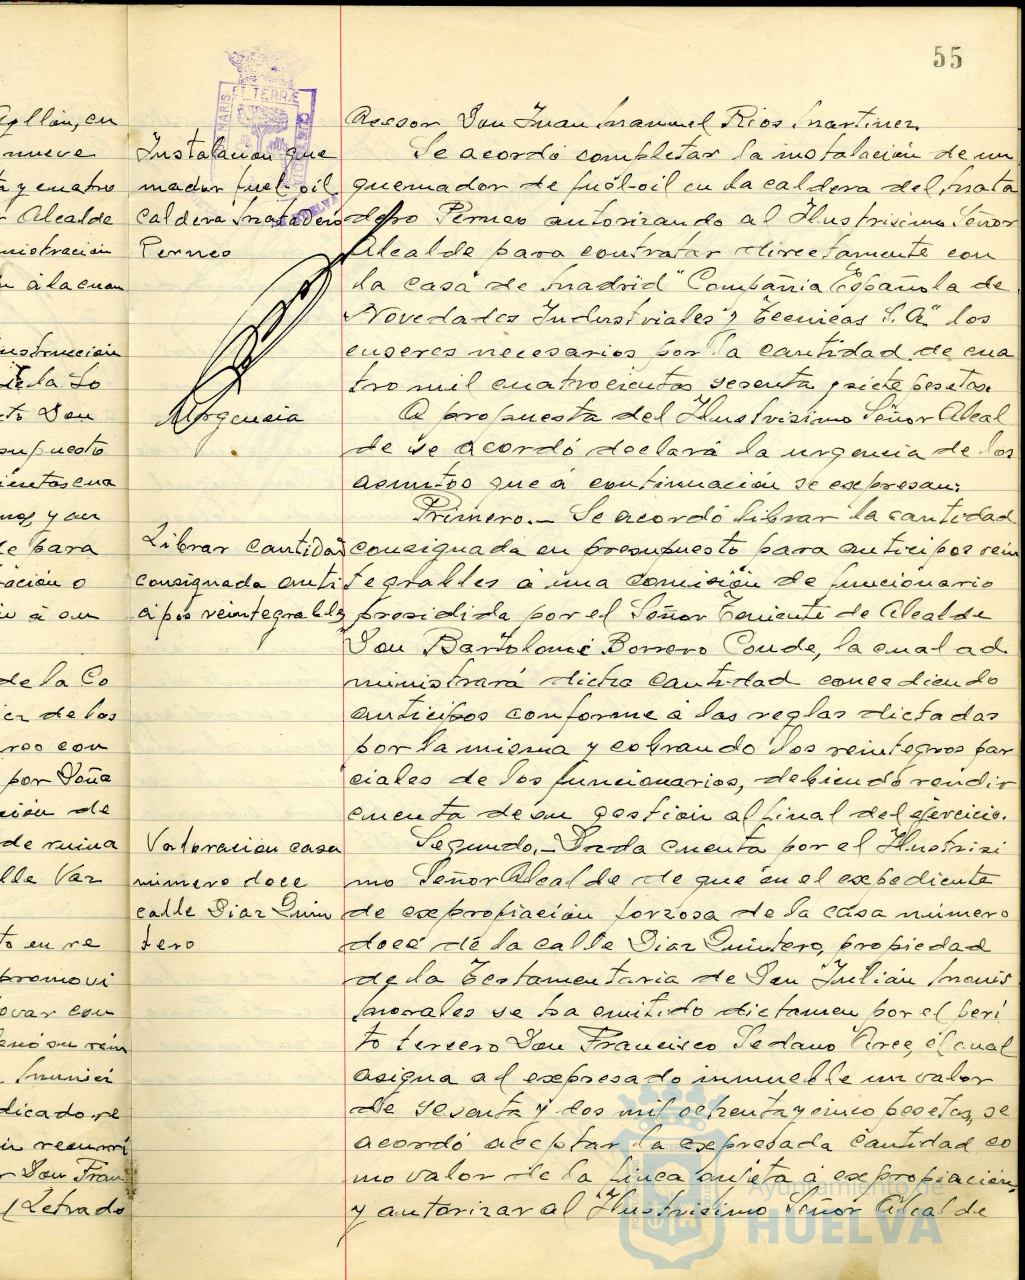 55
MARIS
ET TERRÆ
CUSTODIA
HUELVA
Ayllón, en
nueve
ta y cuatro
r Alcalde
inistración
n á la cuan
nstrucción
de la So
to Don
supuesto
cientas cua
nos, y au
de para
ración o
io á su
de la Co
ier de los
reo con
por Doña
ción de
de ruina
lle Vaz
to en re
promovi
ovar con
enó su rein
Munici
dicado re
in recurri
r Don Fran
l Letrado
Instalación que
mador fuel-oil
caldera Matadero
Perneo
Urgencia
Librar cantidad
consignada anti
cipos reintegrables
Valoración casa
número doce
calle Diaz Quin
tero
Asesor Don Juan Manuel Rios Martinez.
Se acordó completar la instalación de un
quemador de fuól-oil en la caldera del Mata
dero Perneo autorizando al Ilustrisimo Señor
Alcalde para contratar directamente con
la casa de Madrid "Compañia Española de
Novedades Industriales y Tecnicas S.A." los
enseres necesarios por la cantidad de cua
tro mil cuatrocientas sesenta y siete pesetas.
A propuesta del Ilustrisimo Señor Alcal
de se acordó declará la urgencia de los
asuntos que á continuación se expresan:
Primero.- Se acordó librar la cantidad
consignada en presupuesto para anticipos rein
tegrables á una comisión de funcionario
presidida por el Señor Teniente de Alcalde
Don Bartolomé Borrero Conde, la cual ad
ministrará dicha cantidad concediendo
anticipos conforme á las reglas dictadas
por la misma y cobrando los reintegros par
ciales de los funcionarios, debiendo rendir
cuenta de su gestión al final del ejercicio.
Segundo.- Dada cuenta por el Ilustrisi
mo Señor Alcalde de que en el expediente
de expropiación forzosa de la casa número
doce de la calle Diaz Quintero, propiedad
de la Testamentaria de Don Julián Monis
Morales se ha emitido dictamen por el peri
to tercero Don Francisco Sedano Arce, el cual
asigna al expresado inmueble un valor
de sesenta y dos mil ochenta y cinco pesetas, se
acordó aceptar la expresada cantidad co
mo valor de la finca sujeta á expropiación
y autorizar al Ilustrisimo Señor Alcalde
Ayuntamiento de
HUELVA